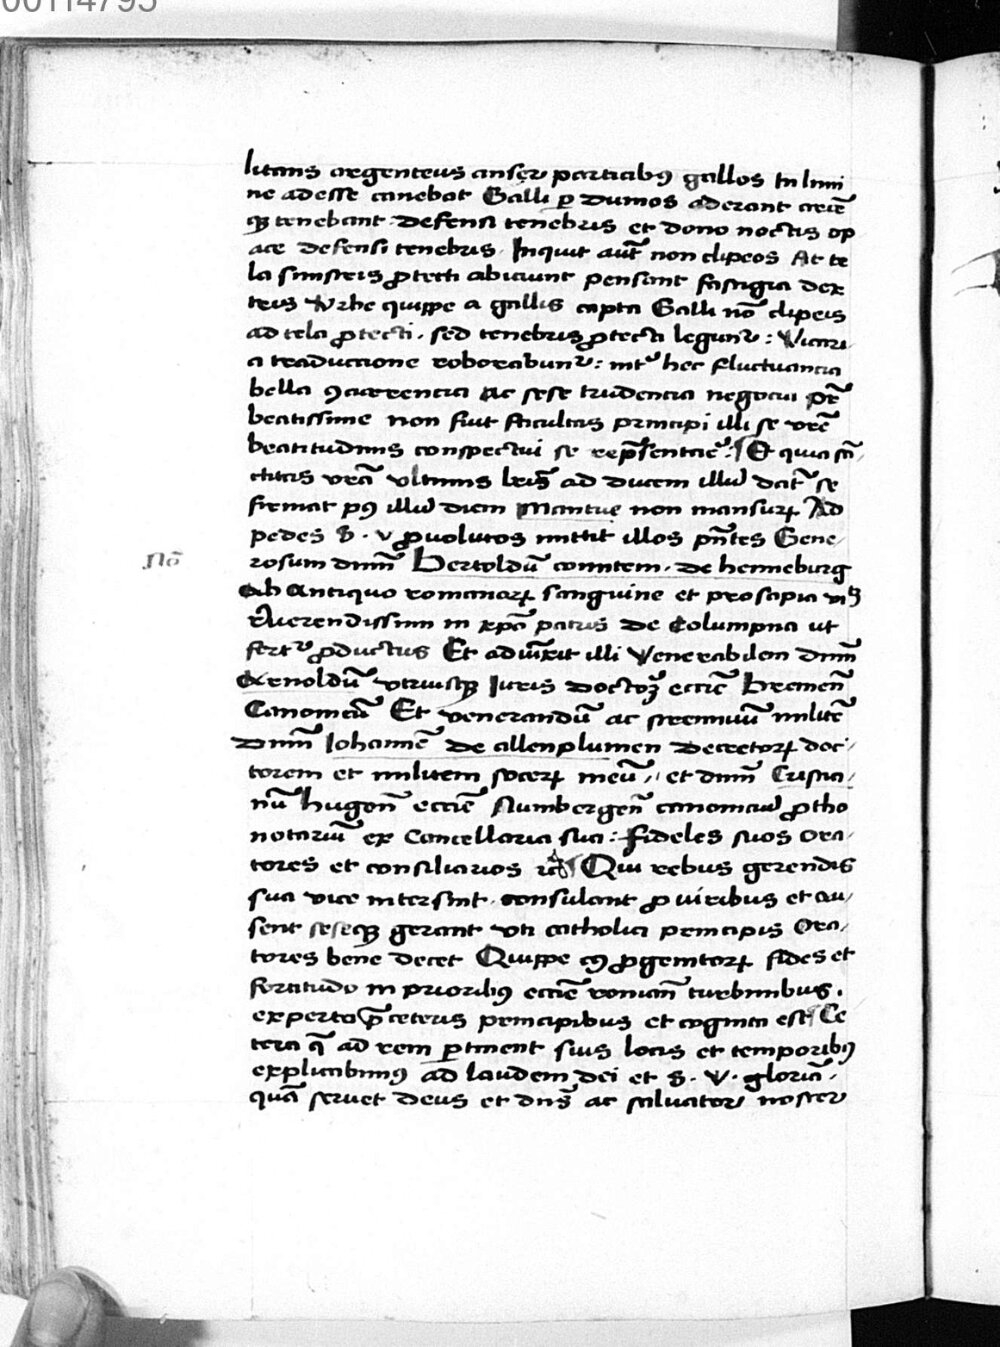 00114795
litans argenteus anser porticibꝰ gallos In limi
ne adesse canebat Galli ꝑ dumos aderant arcē
qꝫ tenebant defensi tenebris et dono noctis op
ace defensi tenebris Inquit aut̄ non clipeos At te
la sinistris ꝓtecti abiciunt pensant fastigia dex
tris Vrbe quippe a gallis capta Galli nō clipeis
ad tela ꝓtecti. sed tenebris ꝓtecti legunt᷑: Vicari
a traduccione roborabunt᷑: int᷑ hec fluctuancia
bella ꝯcurrencia Ac sese trudencia negocia pr̄
beatissime non fuit facultas principi illi se vrē
beatitudinis conspectui se rep̄sentare: Et quia sā
ctitas vrā vltimis lr̄is ad ducem illuḋ dat̄ se
firmat pꝰ illuḋ diem Mantue non mansurꝝ Ad
pedes S. v ꝓuolutos mittit illos pn̄tes Gene
rosum dnm̄ Bertoldū comitem. de henneburg
Nō
Ab Antiquo romanorꝝ sanguine et prosapia
Reuerendissimi in xpō patris de Columpna ut
fert᷑ ꝓductus Et adiūxit illi Venerabilem dnm̄
Arnoldū vtriusqꝫ Iuris doctorꝫ eccīe Bremen̄
Canonicū Et venerandū ac strennuū militē
Dnm̄ Iohannē de allenplumen decretorꝝ doc
torem et militem socerꝝ meū, et dnm̄ Cristia
nū hugon̄ eccīe Numbergen̄ canonicuḋ ꝓtho
notariū ex Cancellaria sua: fideles suos Ora
tores et consiliarios Qui rebus gerendis
sua vice intersint. consulant ꝓ viribus et au
sent seseqꝫ gerant vti catholici principis Ora
tores bene decet Quippe cꝰ ꝓgenitorꝝ fides et
fortitudo in prioribꝰ eccīe roman̄ turbinibus.
experta p̄ ceteris principibus et cognita est Ce
tera q̄ ad rem ꝑtinent suis locis et temporibꝰ
explicabimꝰ ad laudem dei et S. V. gloriā.
quā seruet deus et dn̄s ac saluator noster